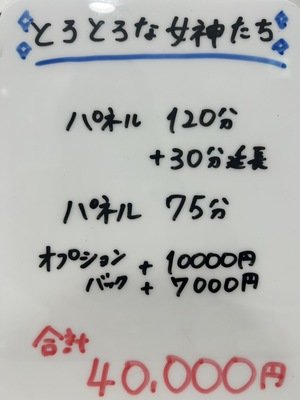 とろとろな女神たち
パネル 120分
+30分延長
パネル 75分
オプション + 10000円
バック + 7000円
合計
40,000円